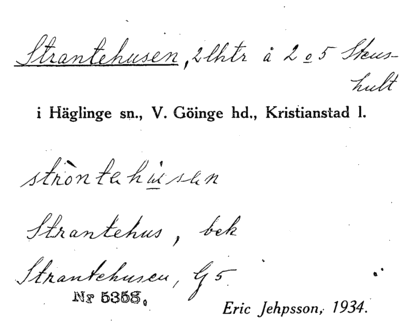 Strantehusen, 2 lhtr å 2 o 5 Stens-
hult
i Häglinge sn., V. Göinge hd., Kristianstad l.
stròntahu̲san
Strantehus, bek
Strantehusen, G 5
Nr 5353.
Eric Jehpsson, 1934.